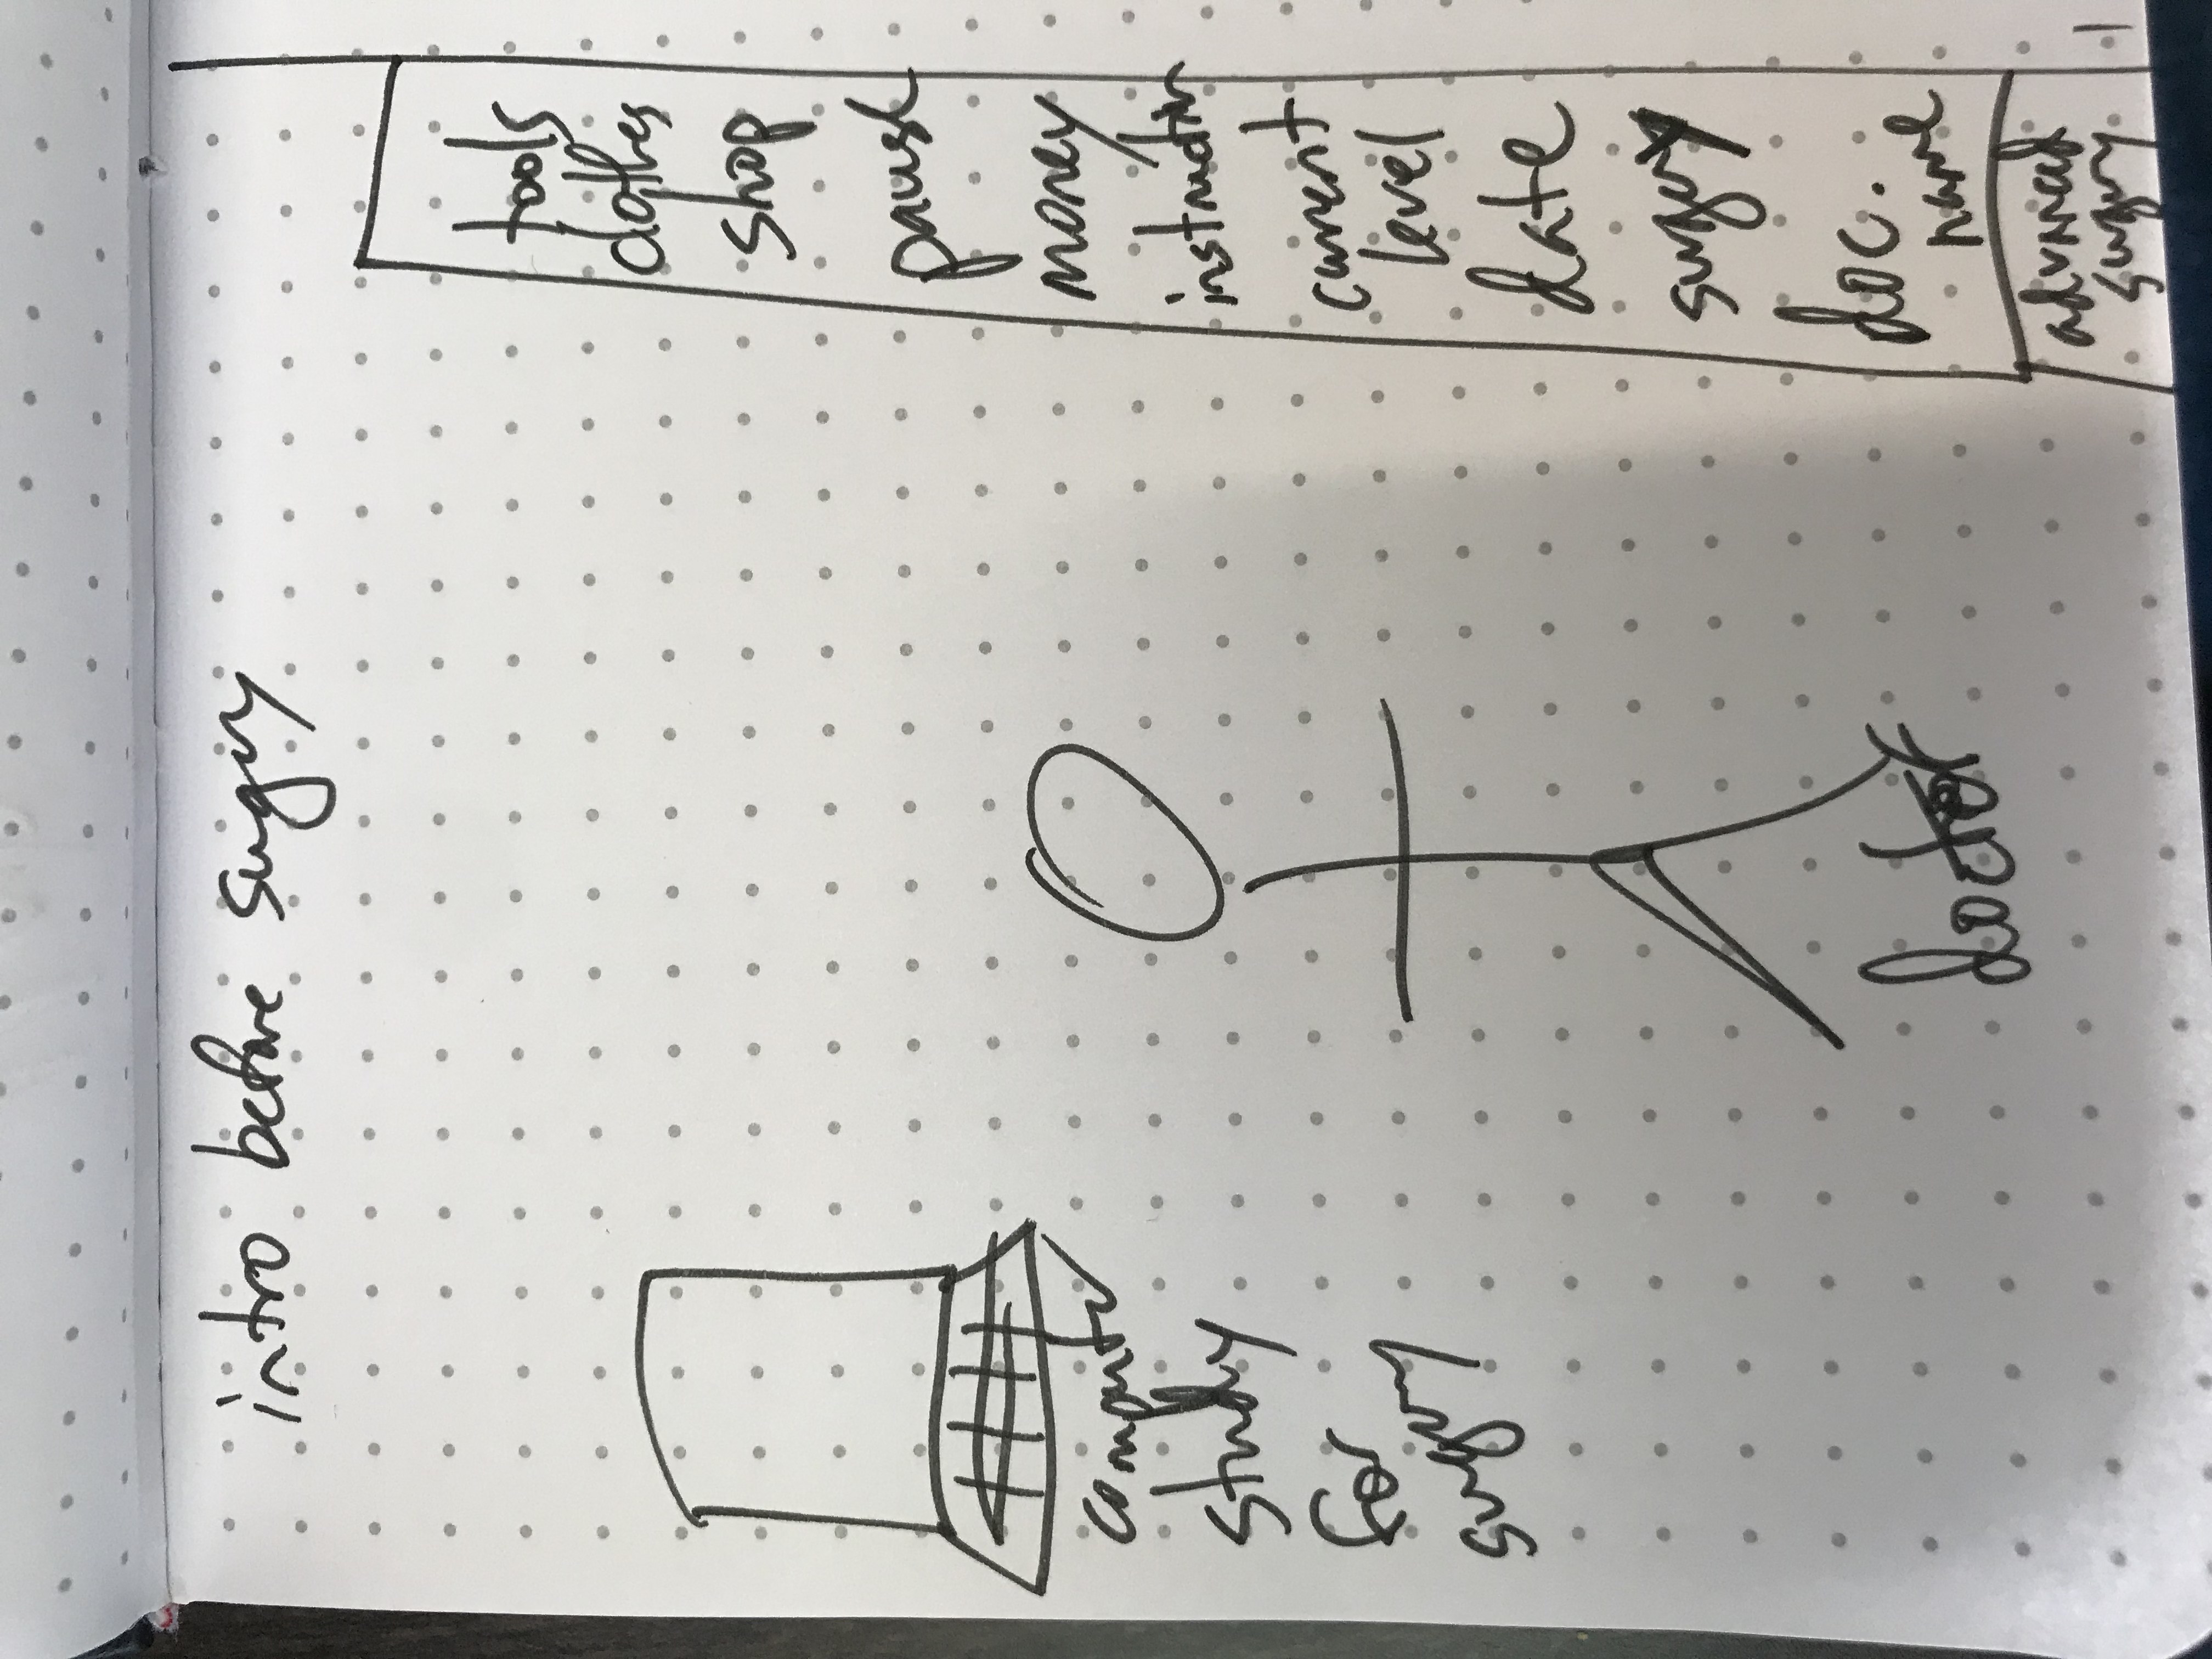 intro before surgery
computer
study
for
surgery
doctor
tools
clothes
shop
pause
money/
instructor
current
level
date
surgery
doc.
name
advanced
surgery